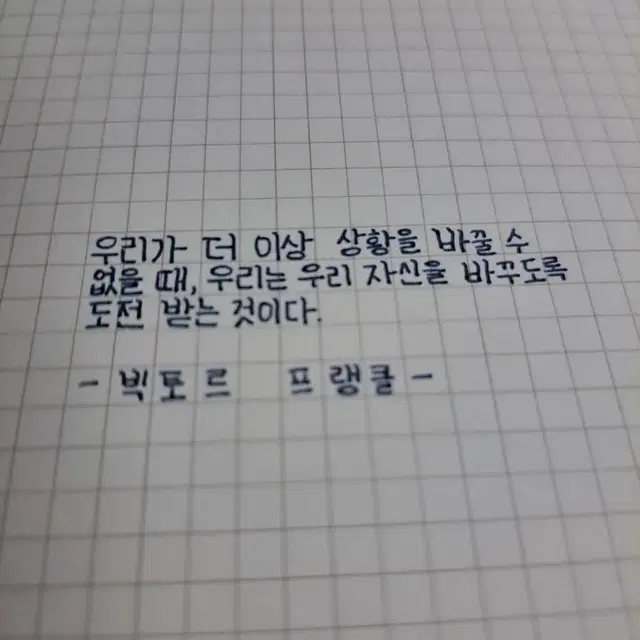 우리가 더 이상 상황을 바꿀 수
없을 때, 우리는 우리 자신을 바꾸도록
도전 받는 것이다.
- 빅토르 프랭클 -